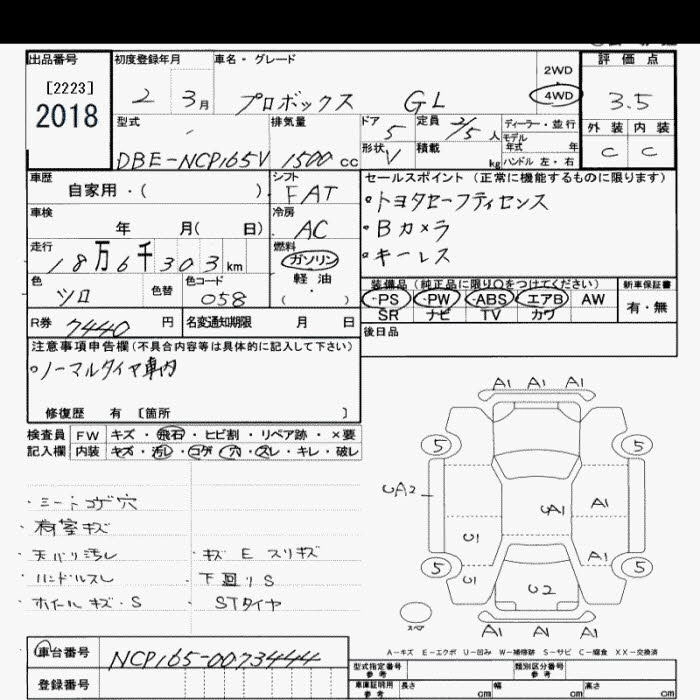 出品番号
[2223]
2018
初度登録年月
2 3月
車名・グレード
プロボックス GL
2WD
4WD
評価点
3.5
型式
DBE-NCP165V
排気量
1500 cc
ドア 5
定員 2/5 人
ディーラー・並行
モデル年式 年
形状 V
積載 kg
ハンドル 左・右
外装 内装
C C
車歴
自家用・( )
シフト
FAT
セールスポイント (正常に機能するものに限ります)
・トヨタセーフティセンス
・Bカメラ
・キーレス
車検
年 月( 日)
冷房
AC
走行
18万6千303km
燃料
ガソリン
軽油
( ・ )
色
ツロ
色替
色コード
058
装備品 (純正品に限り○をつけてください)
・PS ・PW ・ABS エアB AW
SR ナビ TV カワ
新車保証書
有・無
R券 7440 円
名変通知期限 月 日
後日品
注意事項申告欄(不具合内容等は具体的に記入して下さい)
・ノーマルタイヤ車内
修復歴 有 [箇所 ]
検査員 FW キズ・飛石・ヒビ割・リペア跡・×要
記入欄 内装 キズ・汚レ・コゲ・穴・スレ・キレ・破レ
・シートコゲ穴
・荷室キズ
・天バリ汚レ
・ハンドルスレ
・ホイールキズ・S
・キズ E スリキズ
・下回りS
・STタイヤ
A1 A1 A1
5 5
UA2
UA1
A1
U1
A1
5 5
U1
U2
スペア
A1 A1 A1
A-キズ E-エクボ U-凹み W-補修跡 S-サビ C-腐食 XX-交換済
車台番号
NCP165-0073444
登録番号
型式指定番号 参考
類別区分番号 参考
車庫証明用 参考
長さ cm 幅 cm 高さ cm